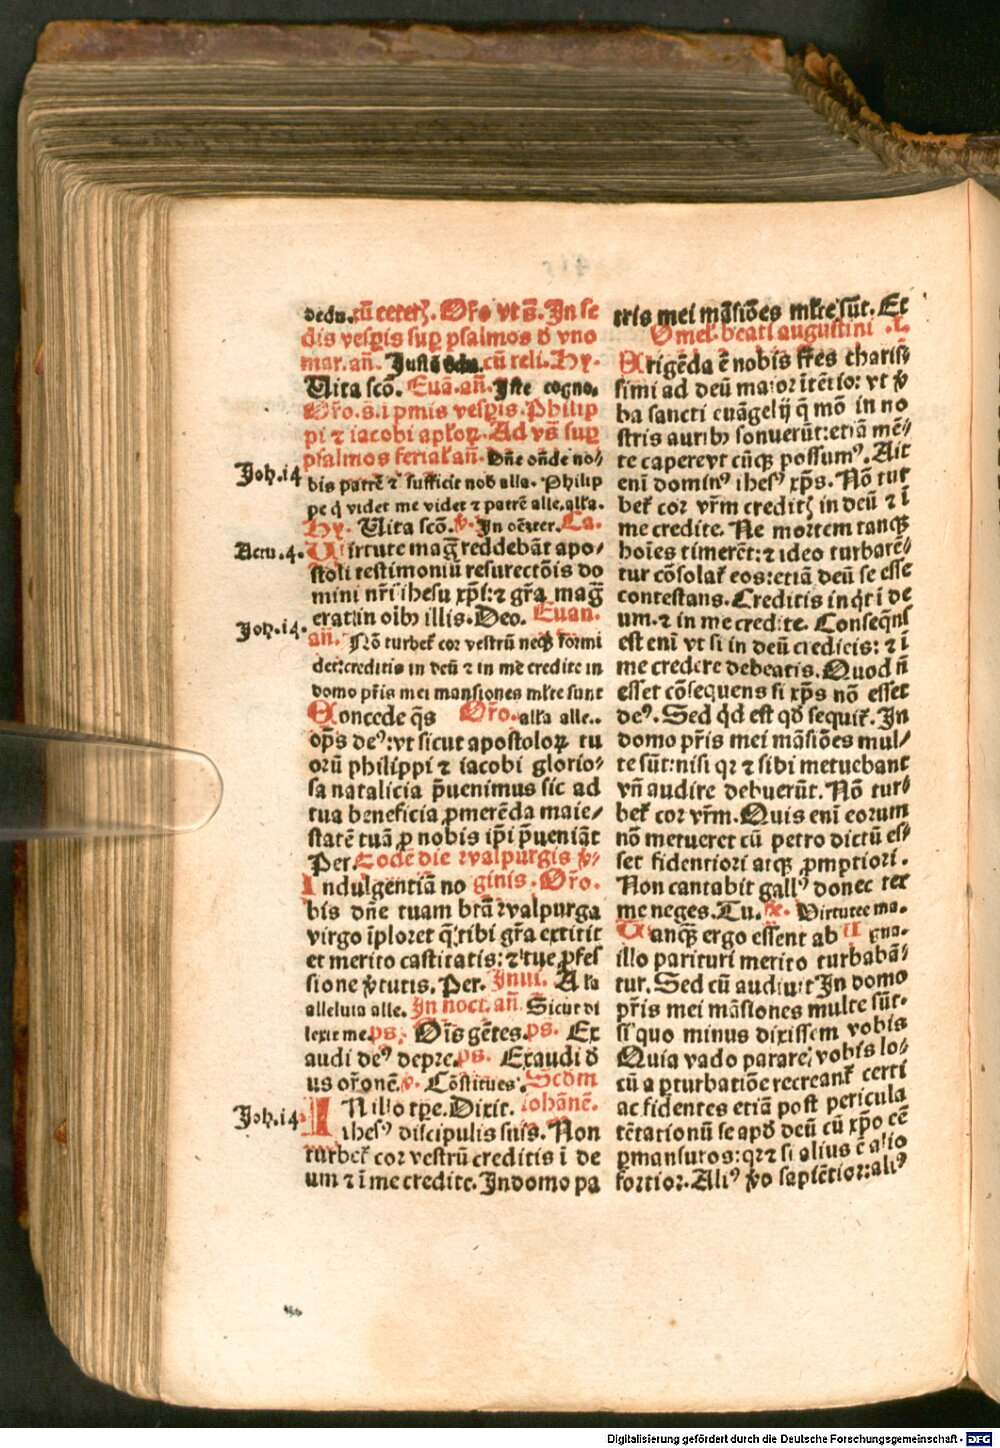 dedu. cũ ceterꝭ. Oro vt ꝭ. In se
dis vespis sup psalmos đ vno
mar. añ. Iustũ cũ reli. Hy.
Uita scõ. Euã. añ. Iste cogno.
Oro. ꝭ. i pmis vespis. Philip
pi ⁊ iacobi aplorꝝ. Ad vꝭ sup
psalmos feriaƚ añ. Dñe onde no/
bis patrẽ ⁊ sufficit nob alla. Philip
pe q̇ videt me videt ⁊ patrẽ alle. alla.
Hy. Uita scõ. v. In oẽ Ca.
Joh. i4
Uirtute mag̃ reddebãt apo/
Actu. 4.
stoli testimoniũ resurectõis do
mini nr̃i ihesu xpi: ⁊ gr̃a mag̃
erat in oib illis. Deo. Euan.
Joh. i4.
añ. Nõ turbeƚ cor vestrũ neqꝫ formi
det: creditis in deũ ⁊ in me credite in
domo pr̃is mei mansiones mlte sunt
Concede q̃s Oro. alla alle..
op̃s deꝰ: vt sicut apostolorꝝ tu
orũ philippi ⁊ iacobi glorio/
sa natalicia p̃uenimus sic ad
tua beneficia ꝓmerẽda maie/
statẽ tuã ꝓ nobis ip̃i p̃ueniãt
Per. Eodẽ die walpurgis v̇/
Indulgentiã no ginis. Oro.
bis dñe tuam btã walpurga
virgo ĩploret q̃ tibi gr̃a extitit
et merito castitatis: ⁊ tue ꝓfes
sione v̇tutis. Per. Inui. Alla
alleluia alle. In noct. añ. Sicut di
lexit me. ps. Oẽs gẽtes. ps. Ex
audi deꝰ depre. ps. Exaudi đ
us orõnẽ. v. Cõstitues. Scdm
IN illo tpe. Dixit. iohãnẽ.
Joh. i4
ihesꝰ discipulis suis. Non
turbeƚ cor vestrũ creditis ĩ de
um ⁊ ĩ me credite. In domo pa
tris mei mãsiões mlte sũt. Et
Omel. beati augustini .
Arigẽda ẽ nobis fr̃es chariss
simi ad deũ maior itẽtio: vt v̇
ba sancti euãgelij q̃ mõ in no
stris auribꝫ sonuerũt: etiã mẽ/
te capere vt cũqꝫ possumꝰ. Ait
eni dominꝰ ihesꝰ xp̃s. Nõ tur
beƚ cor vr̃m creditꝭ in deũ ⁊ ĩ
me credite. Ne mortem tanqꝫ
hoies timerẽt: ⁊ ideo turbarẽ/
tur cõsolaƚ eos: etiã deũ se esse
contestans. Creditis inq̇t i de
um. ⁊ in me credite. Conseq̃ns
est eni vt si in deũ creditis: ⁊ ĩ
me credere debeatis. Quod ñ
esset cõsequens si xp̃s nõ esset
deꝰ. Sed q̇d est qđ sequiƚ. In
domo pr̃is mei mãsiões mul/
te sũt: nisi qꝛ ⁊ sibi metuebant
vñ audire debuerũt. Nõ tur/
beƚ cor vr̃m. Quis eni eorum
nõ metueret cũ petro dictũ es/
set fidentiori atqꝫ ꝓmptiori.
Non cantabit gallꝰ donec ter
me neges. Tu. R. Virtute ma.
Tanqꝫ ergo essent ab
illo parituri merito turbabã/
tur. Sed cũ audiuit In domo
pr̃is mei mãsiones multe sũt.
si quo minus dixissem vobis
Quia vado parare vobis lo/
cũ a ꝑturbatiõe recreanƚ certi
ac fidentes etiã post pericula
tẽtationũ se apđ deũ cũ xp̃o eẽ
ꝑmansuros: qꝛ ⁊ si alius ẽ alio
fortior. Aliꝰ v̇o sapiẽtior: aliꝰ
Digitalisierung gefördert durch die Deutsche Forschungsgemeinschaft - DFG